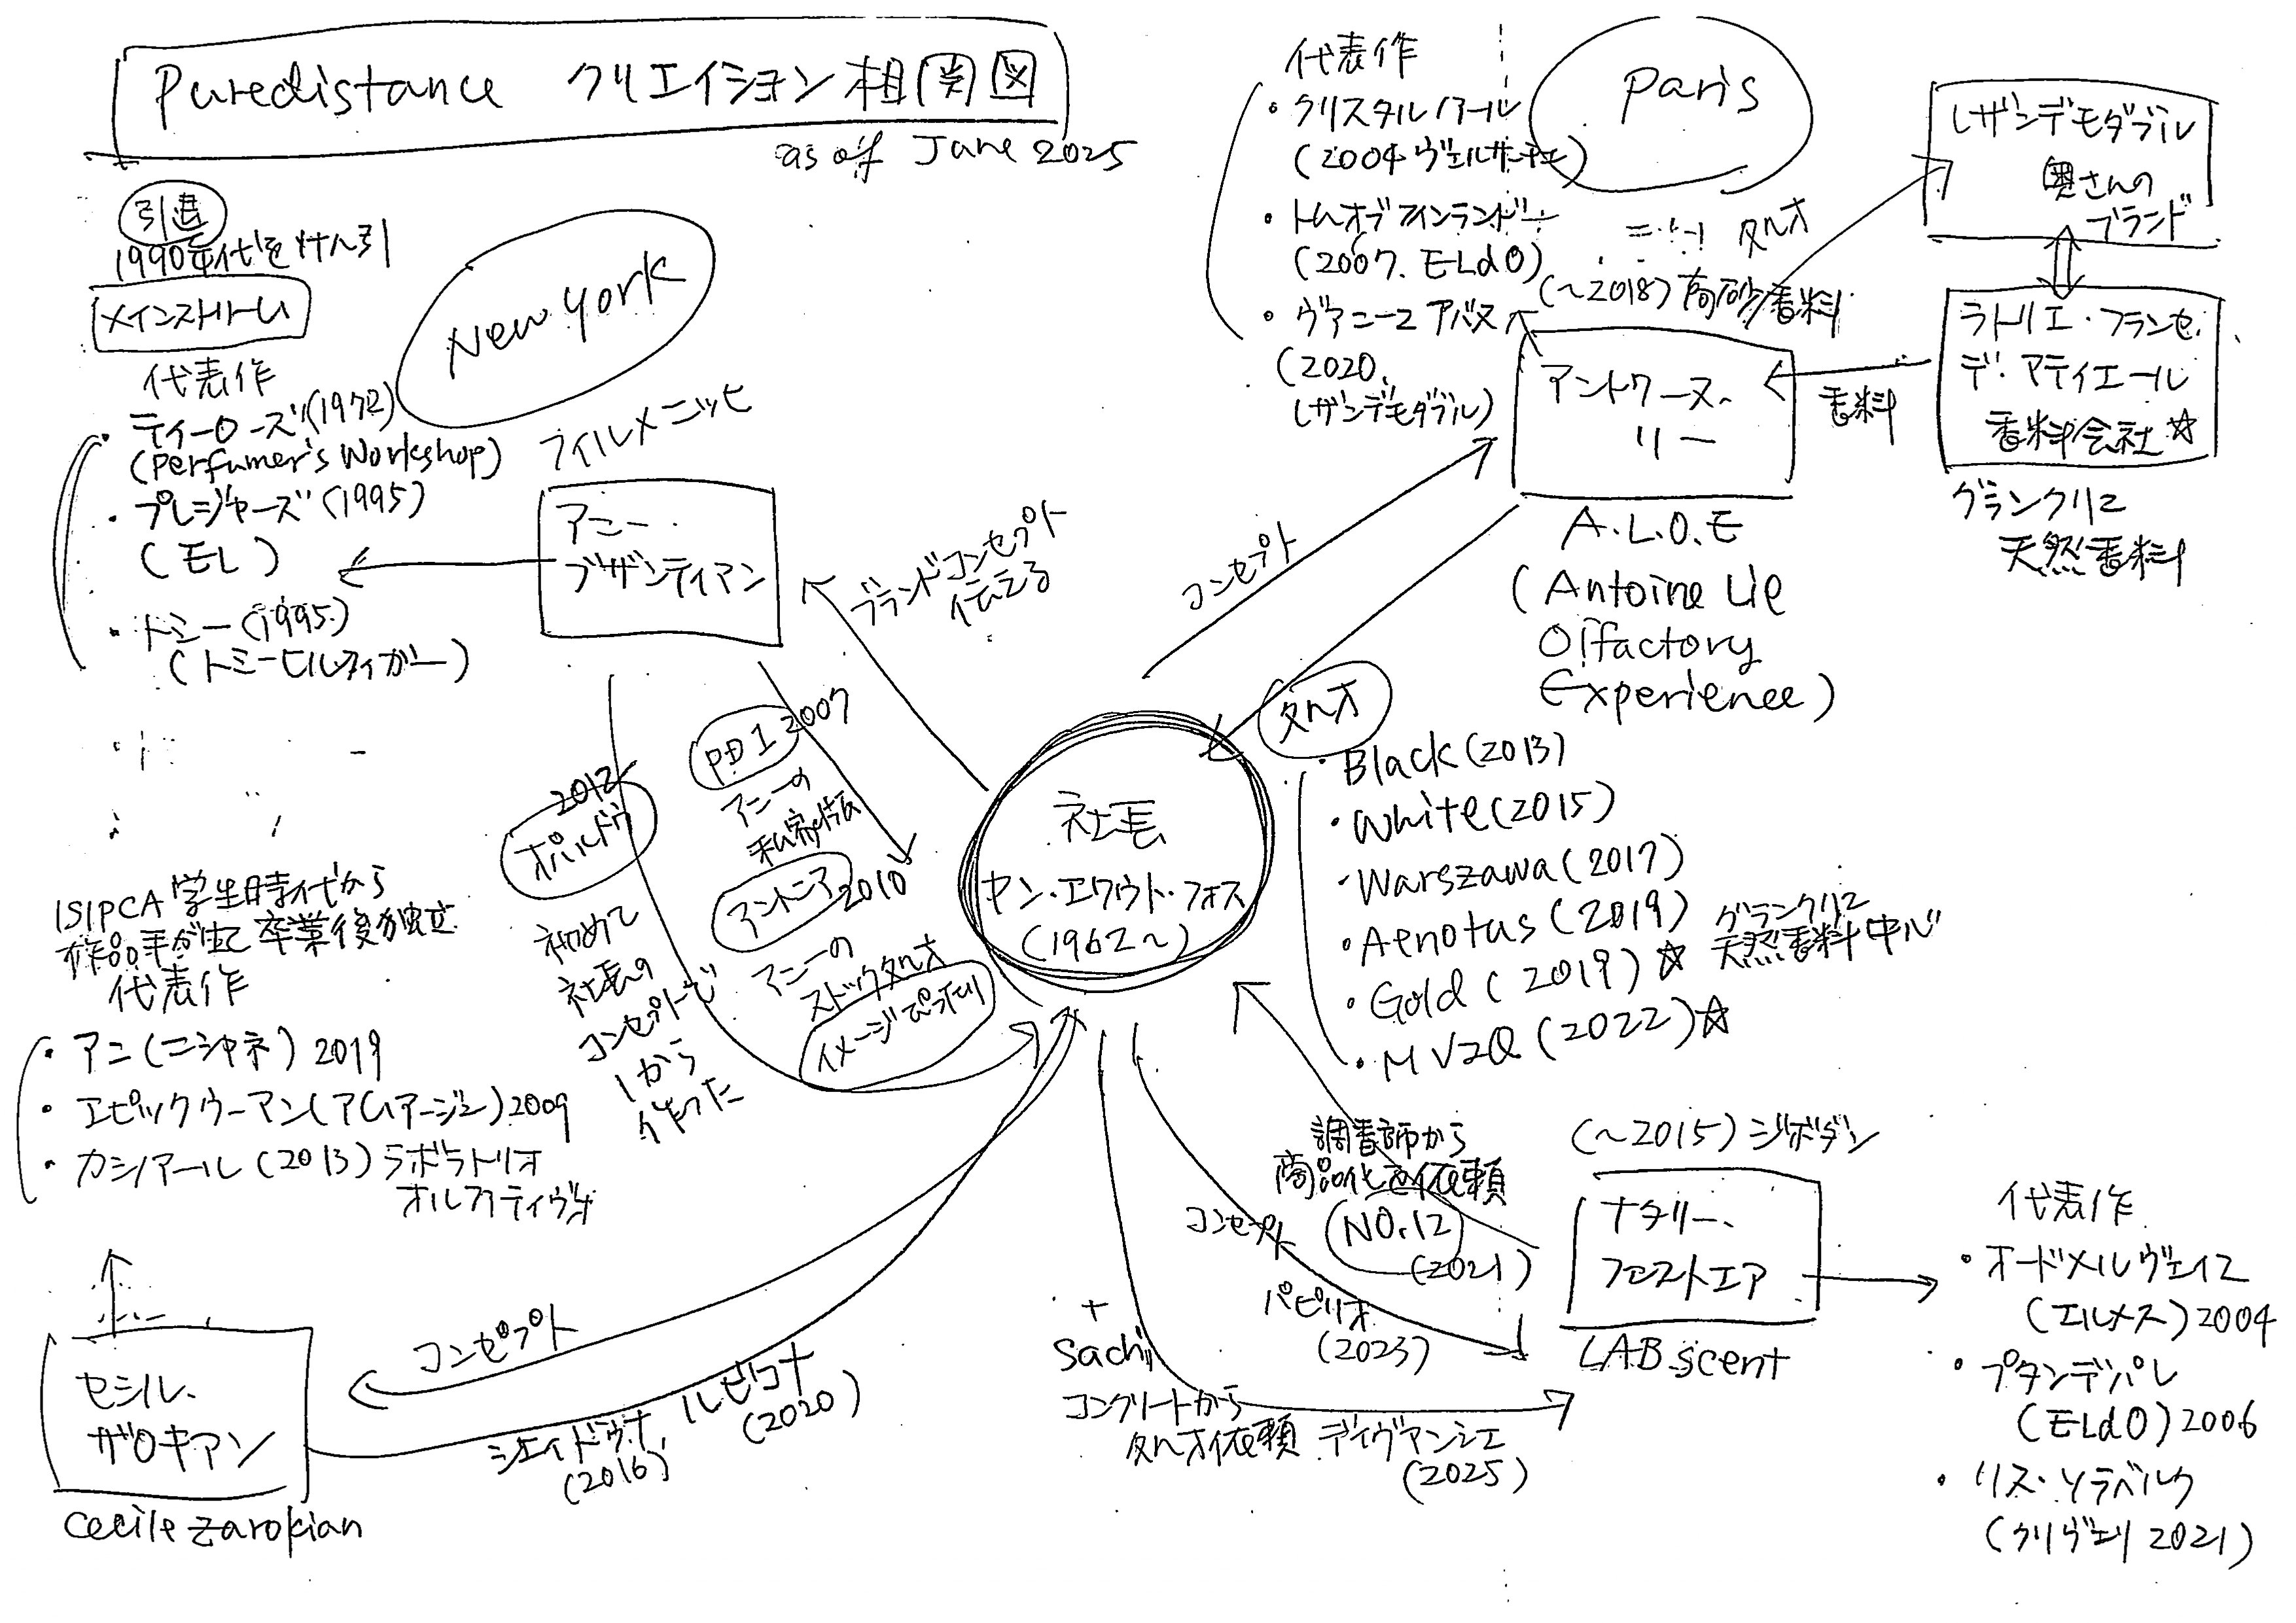 Puredistance クリエイション相関図
as of June 2025
引退
1990年代をけん引
メインストリーム
代表作
・ティーローズ(1972)
(Perfumer's Workshop)
・プレジャーズ(1995)
(EL)
・トミー(1995)
(トミーヒルフィガー)
New York
フィルメニッヒ
アニー・
ブザンティアン
ブランドコンセプト
伝える
PD1 2007
アニーの
私家版
アントニア 2010
アニーの
ストックタルオ
イメージぴったり
2012
オパルドゥ
初めて
社長の
コンセプトで
1から
作った
代表作
・クリスタルノアール
(2004 ヴェルサーチェ)
・トムオブフィンランド
(2007. ELdO)
・ヴァニーユアバス
(2020.
レザンデモダブル)
Paris
タルオ
(〜2018) 高砂香料
アントワーヌ・
リー
A.L.O.E
(Antoine Lie
Olfactory
Experience)
レザンデモダブル
奥さんの
ブランド
ラトリエ・フランセ・
デ・マティエール
香料会社☆
グランクリュ
天然香料
香料
コンセプト
タルオ
・Black(2013)
・White(2015)
・Warszawa(2017)
・Aenotus(2019)
・Gold(2019)☆ グランクリュ
天然香料中心
・MV2Q(2022)☆
社長
ヤン・エワウト・フォス
(1962〜)
ISIPCA学生時代から
作品手がけ 卒業後独立
代表作
・アニ(ニシャネ) 2019
・エピックウーマン(アムアージュ) 2009
・カシノアール(2013) ラボラトリオ
オルファティーヴォ
セシル・
ザロキアン
Cecile Zarokian
コンセプト
シェイドゥナ
(2016)
ルビコナ
(2020)
調香師から
商品化を依頼
NO.12
(2021)
コンセプト
パピリオ
(2023)
+
Sachi
コンクリートから
タルオ依頼 ディヴァンシェ
(2025)
(〜2015) ジボダン
ナタリー・
フェストエア
LAB scent
代表作
・オードメルヴェイユ
(エルメス) 2004
・プタンデパレ
(ELdO) 2006
・リス・ソラベルク
(クリヴェリ 2021)